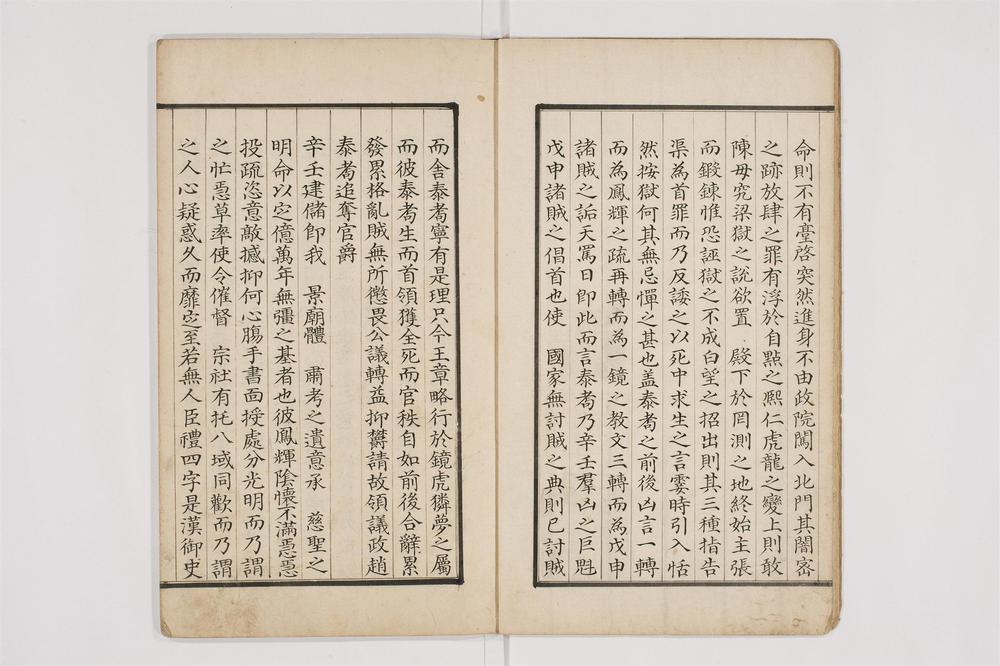 命則不有臺啓突然進身不由政院闖入北門其闇密
之跡放肆之罪有浮於自點之熙仁虎龍之變上則敢
陳毋究梁獄之說欲置 殿下於罔測之地終始主張
而鍛鍊惟恐誣獄之不成白望之招出則其三種指告
渠為首罪而乃反諉之以死中求生之言霎時引入恬
然按獄何其無忌憚之甚也盖泰耉之前後凶言一轉
而為鳳輝之疏再轉而為一鏡之教文三轉而為戊申
諸賊之詬天罵日卽此而言泰耉乃辛壬羣凶之巨魁
戊申諸賊之倡首也使 國家無討賊之典則已討賊
而舍泰耉寧有是理只今王章略行於鏡虎獜夢之屬
而彼泰耉生而首領獲全死而官秩自如前後合辭累
發累格亂賊無所懲畏公議轉益抑欝請故領議政趙
泰耉追奪官爵
辛壬建儲卽我 景廟體 肅考之遺意承 慈聖之
明命以定億萬年無彊之基者也彼鳳輝陰懷不滿忢忢
投疏恣意敵撼抑何心膓手書面授處分光明而乃謂
之忙忢草率使令催督 宗社有托八域同歡而乃謂
之人心疑惑久而靡定至若無人臣禮四字是漢御史